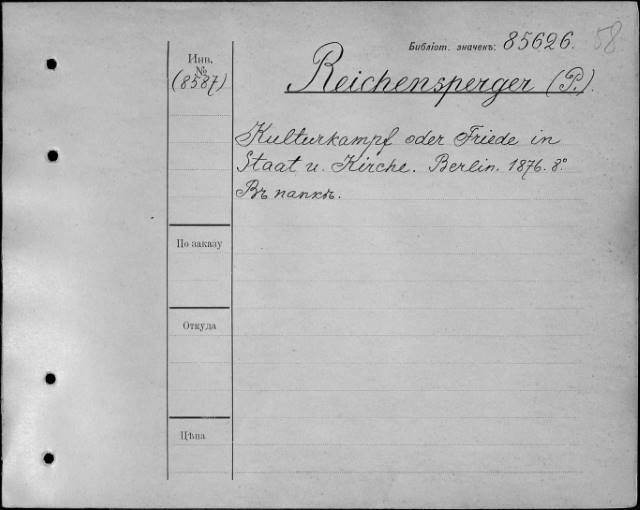 Библіот. значекъ: 85626. 58
Инв.
№
(8587)
Reichensperger (P.).
Kulturkampf oder Friede in
Staat u. Kirche. Berlin. 1876. 8º
Въ папкѣ.
По заказу
Откуда
Цѣна